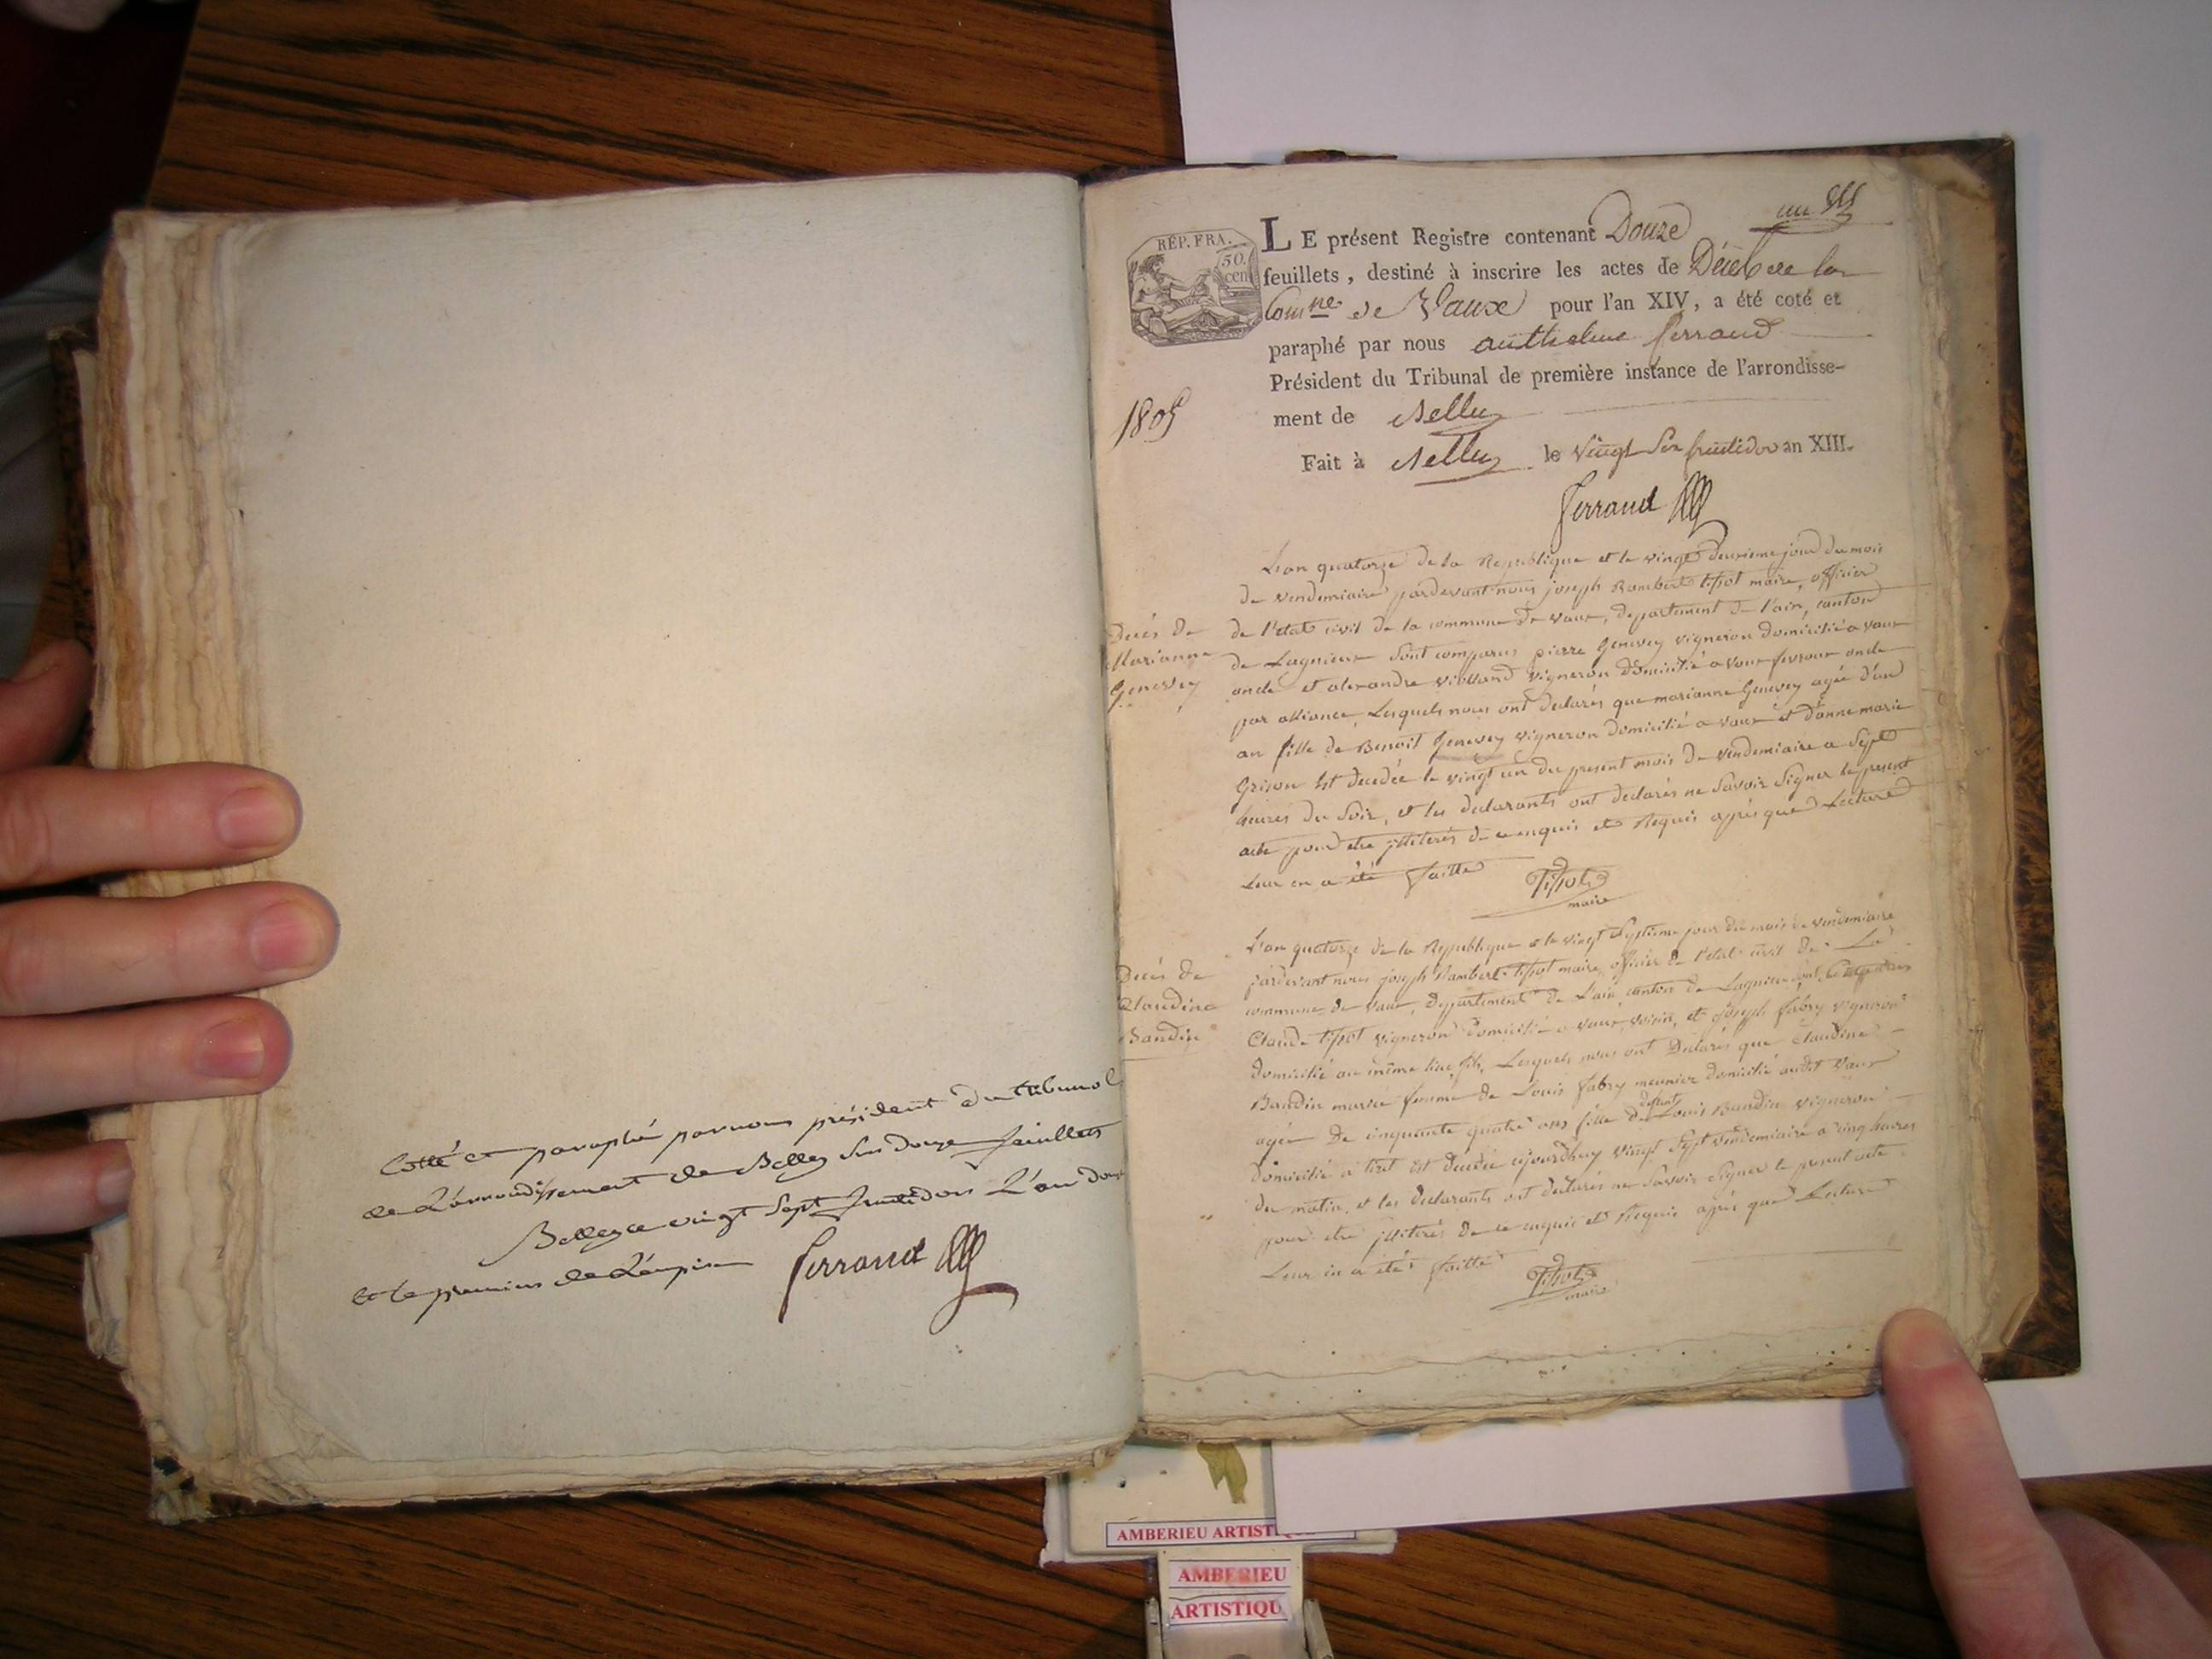 Cotté et paraphé par nous président du tribunal
de L'arrondissement de Belley Sur douze feuillets
Belley ce vingt Sept fructidor L'an douze
et le premier de L'empire Ferrand
un
RÉP. FRA.
50.
cen
LE présent Registre contenant Douze
feuillets, destiné à inscrire les actes de Décès de la
Comne de Vaux pour l'an XIV, a été coté et
paraphé par nous anthelme ferrand
Président du Tribunal de première instance de l'arrondisse-
ment de Belley
1805
Fait à Belley le vingt Six fructidor an XIII.
Ferrand
Décès de
Marianne
Genevey
L'an quatorze de la Republique et le vingt deuxieme jour du mois
de vendemiaire pardevant nous joseph Rambert tissot maire, officier
de l'etat civil de la commune de vaux, departement de l'ain, canton
de Lagnieux Sont comparus pierre Genevey vigneron domicilié a vaux
oncle et alexandre vigneron domicilié a vaux oncle
par alliance, Lesquels nous ont declarés que marianne Genevey agée d'un
an fille de Benoit Genevey vigneron domicilié a vaux et d'anne marie
Grison Est decedée le vingt un du present mois de vendemiaire a Sept
heures du Soir, et les declarants ont declarés ne Savoir Signer le present
acte pour etre jlliterés de ce enquis et Requis après que Lecture
Leur en a été faitte
Tissot
maire
Décès de
Claudine
Bandin
L'an quatorze de la Republique et le vingt Septieme jour du mois de vendemiaire
pardevant nous joseph Rambert tissot maire, officier de l'etat civil de La
commune de vaux, departement de L'ain, canton de Lagnieux, sont Comparus
Claude tissot vigneron domicilié a vaux, voisin, et joseph fabry vigneron
domicilié au même lieu, fils, Lesquels nous ont Declarés que Claudine
Bandin mariée femme de Louis fabry meunier domicilié audit Vaux
agée de cinquante quatre ans fille de defunt Louis Bandin vigneron
domicilié a tiret est decedée aujourdhuy vingt Sept vendemiaire a cinq heures
du matin, et les declarants ont declarés ne Savoir Signer le present acte
pour etre jlliterés de ce enquis et Requis après que Lecture
Leur en a été faitte
Tissot
maire
AMBERIEU ARTISTIQUE
AMBERIEU
ARTISTIQU